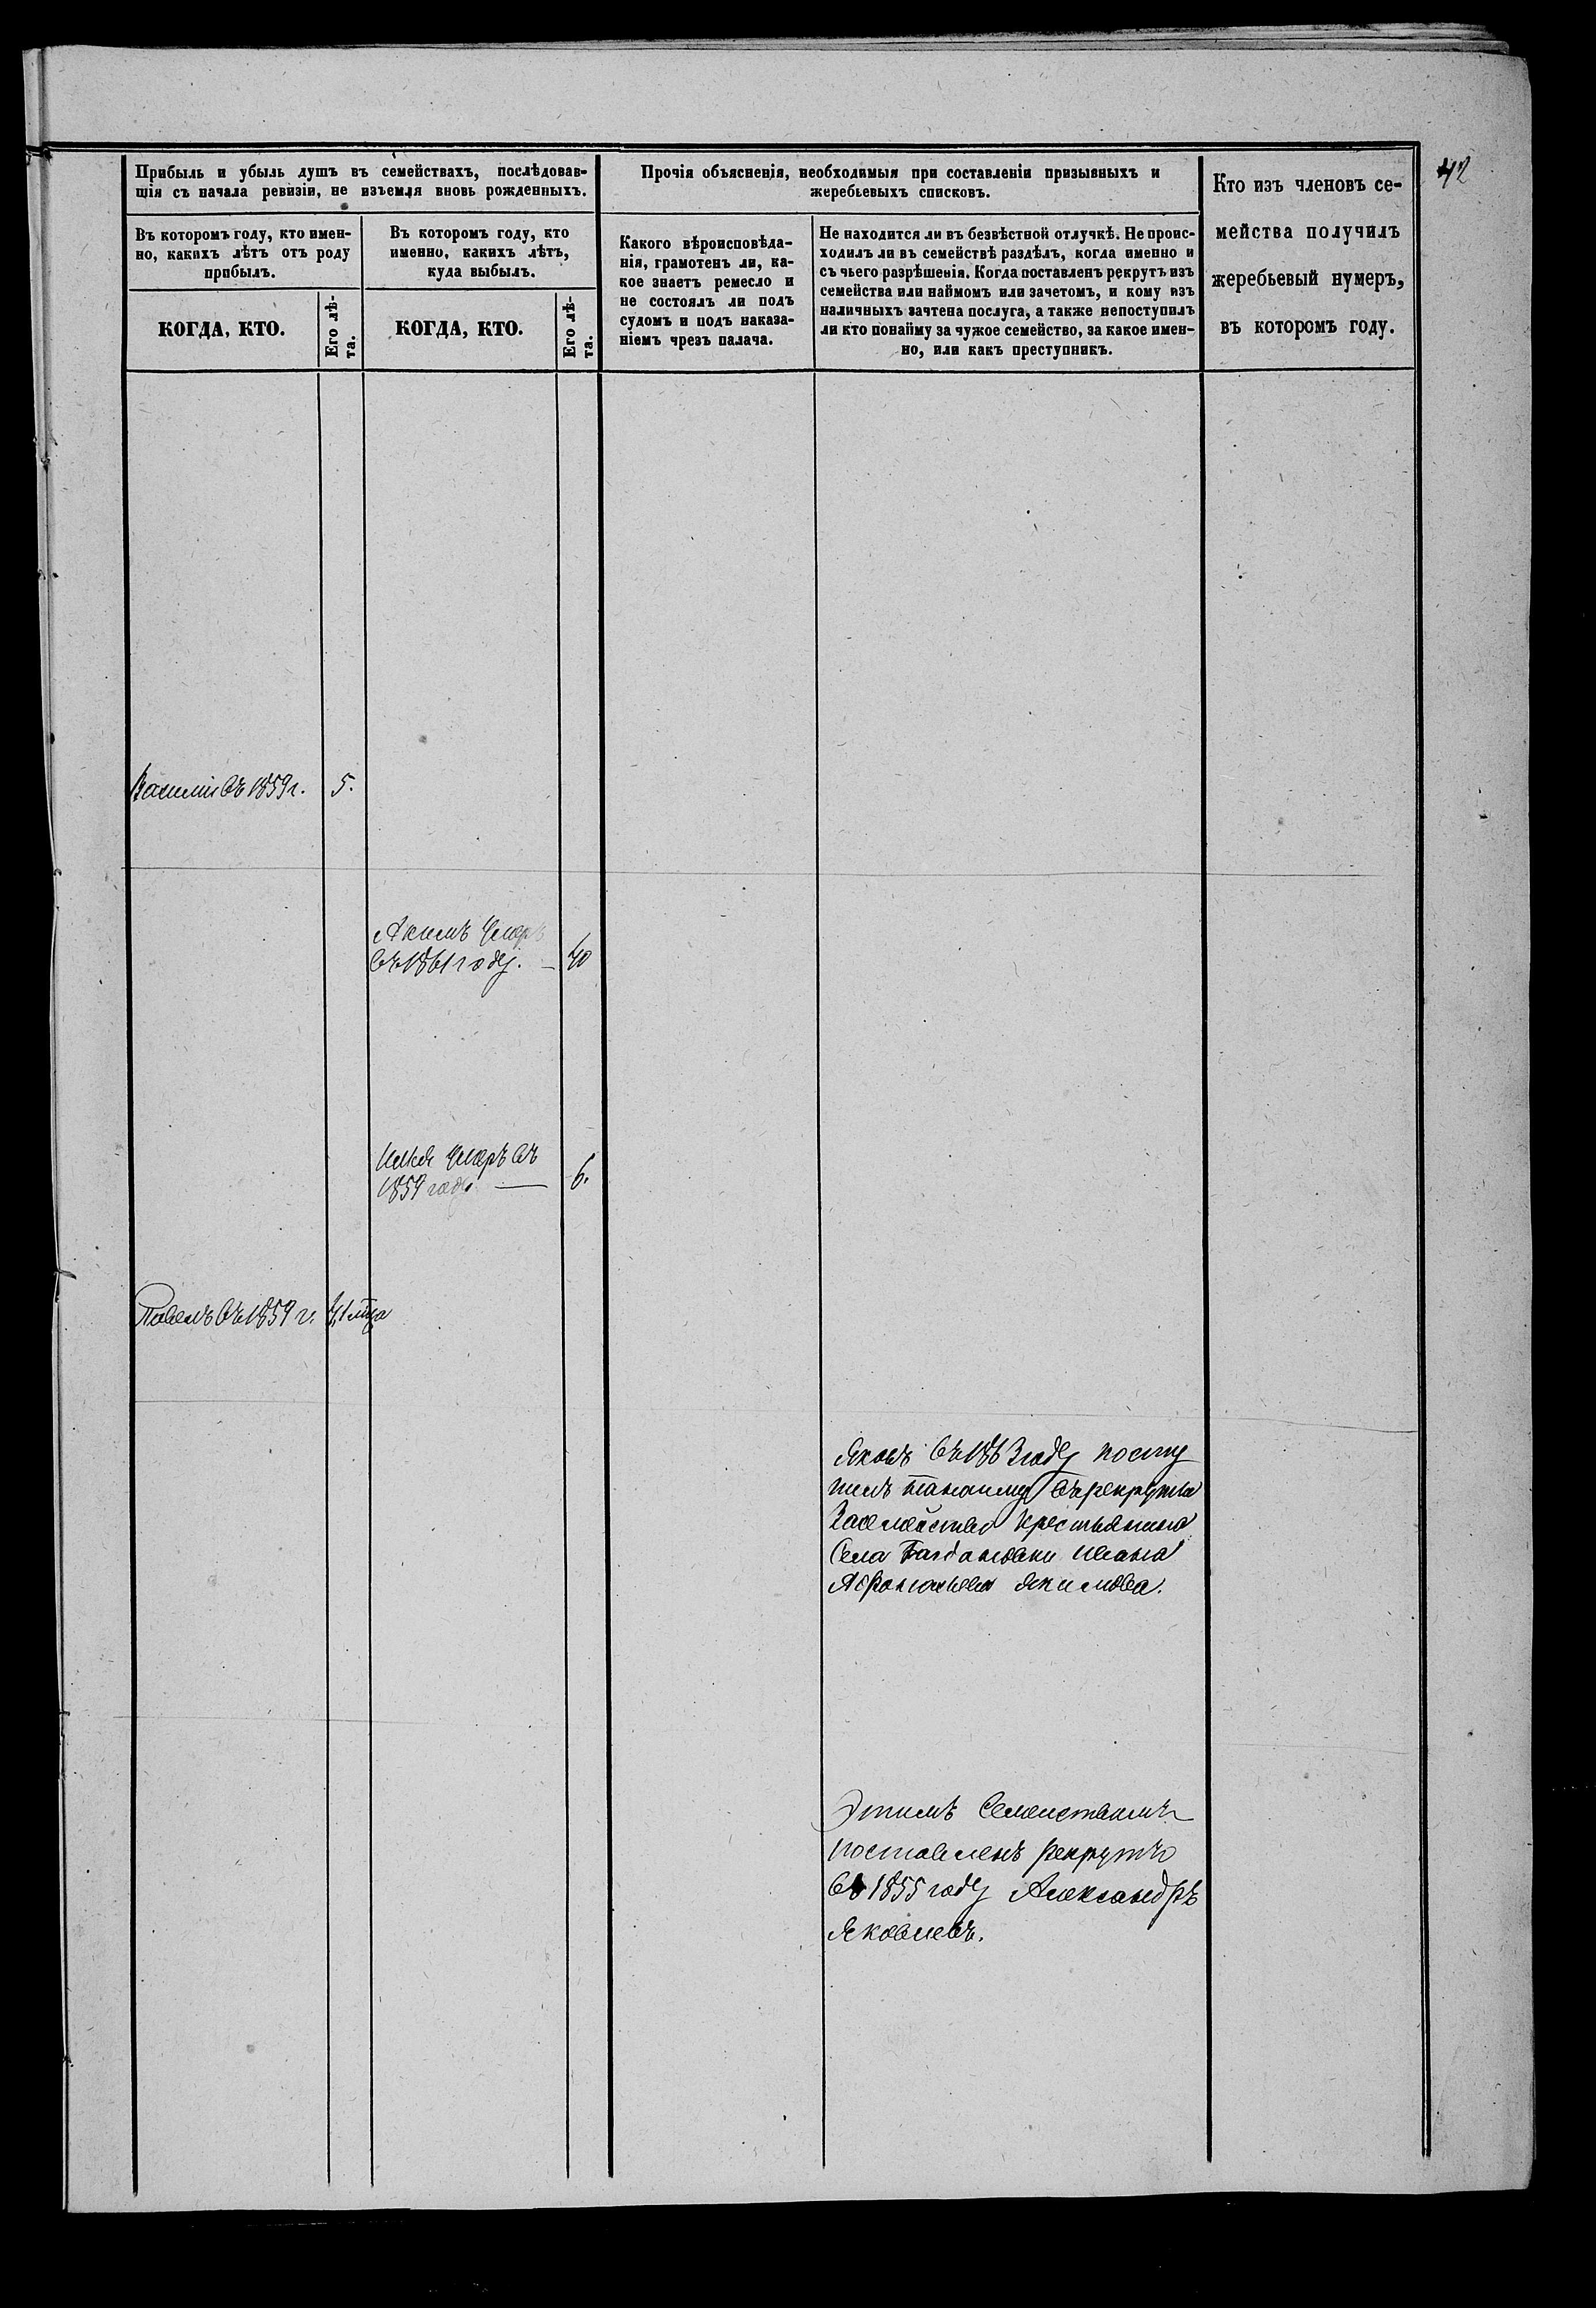 42
Прибыль и убыль душъ въ семействахъ, послѣдовав-
шія съ начала ревизіи, не изъемля вновь рожденныхъ.
Въ которомъ году, кто имен-
но, какихъ лѣтъ отъ роду
прибылъ.
КОГДА, КТО.
Его лѣ-
та.
Въ которомъ году, кто
именно, какихъ лѣтъ,
куда выбылъ.
КОГДА, КТО.
Его лѣ-
та.
Прочія объясненія, необходимыя при составленіи призывныхъ и
жеребьевыхъ списковъ.
Какого вѣроисповѣда-
нія, грамотенъ ли, ка-
кое знаетъ ремесло и
не состоялъ ли подъ
судомъ и подъ наказа-
ніемъ чрезъ палача.
Не находится ли въ безвѣстной отлучкѣ. Не проис-
ходилъ ли въ семействѣ раздѣлъ, когда именно и
съ чьего разрѣшенія. Когда поставленъ рекрутъ изъ
семейства или наймомъ или зачетомъ, и кому изъ
наличныхъ зачтена послуга, а также непоступилъ
ли кто понайму за чужое семейство, за какое имен-
но, или какъ преступникъ.
Кто изъ членовъ се-
мейства получилъ
жеребьевый нумеръ,
въ которомъ году.
Василій въ 1859 г. 5.
Акимъ Умеръ
въ 1861 году. — 40
Илья Умеръ въ
1859 году — 6.
Павелъ въ 1859 г.
Яковъ въ 1863 году посту
пилъ понайму въ рекруты
За семейство крестьянина
Села Богдановки Ивана
Якимова.
Этимъ Семействомъ
поставленъ рекрутъ
въ 1855 году Александръ
Яковлевъ.